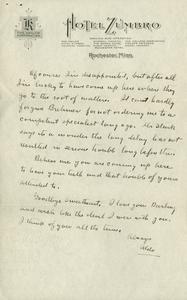 HOTEL ZUMBRO
Rochester, Minn.
Of course I'm disappointed, but after all
I'm lucky to have come up here where they
go to the root of matters. I can't hardly
forgive Brehmer for not ordering me to a
competent specialist long ago. Mr. Stuck
says it's a wonder the long delay has not
resulted in serious trouble long before this.
Believe me you are coming up here
to have your and that trouble of yours
attended to.
Goodbye sweetheart. I love you Darling
and wish like the devil I was with you.
I think of you all the time.
Always
Aldo